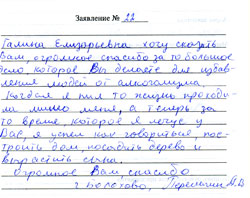 Заявление № 22
Галина Елизарьевна хочу сказать
Вам, огромное спасибо за то большое
дело, которое Вы делаете для избав-
ления людей от алкоголизма.
Когда я пил то жизнь проходи-
ла мимо меня, а теперь за
то время, которое я лечусь у
Вас, я успел как говориться, пос-
троить дом, посадить дерево и
вырастить сына.
Огромное Вам, спасибо
г.